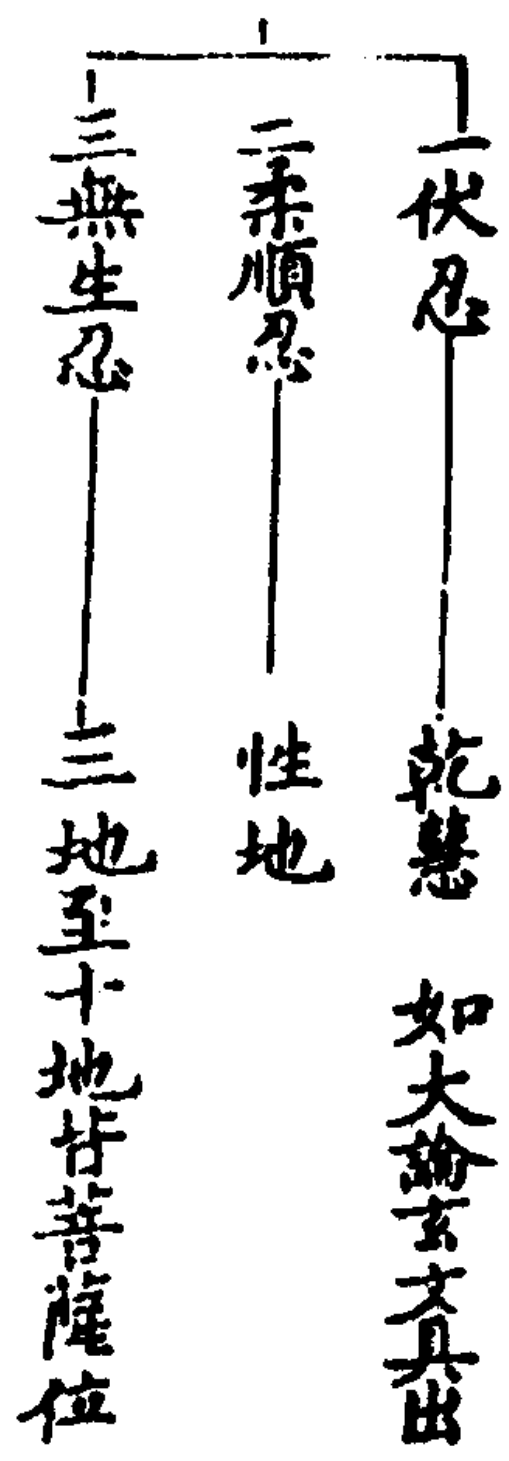 一伏忍 乾慧 如大論玄文具出
二柔順忍 性地
三無生忍 三地至十地皆菩薩位